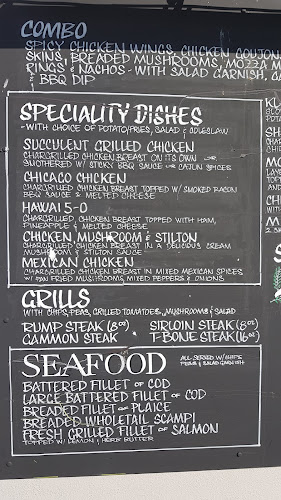 COMBO
SPICY CHICKEN WINGS, CHICKEN GOUJON
SKINS, BREADED MUSHROOMS, MOZZA M
RINGS & NACHOS - WITH SALAD GARNISH,
& BBQ DIP
SPECIALITY DISHES
- WITH CHOICE OF POTATO/FRIES, SALAD & COLESLAW
SUCCULENT GRILLED CHICKEN
CHARGRILLED CHICKEN BREAST ON ITS OWN OR
SMOTHERED IN STICKY BBQ SAUCE OR CAJUN SPICES
CHICAGO CHICKEN
CHARGRILLED CHICKEN BREAST TOPPED W/ SMOKED BACON
BBQ SAUCE & MELTED CHEESE
HAWAII 5-0
CHARGRILLED, CHICKEN BREAST TOPPED WITH HAM,
PINEAPPLE & MELTED CHEESE
CHICKEN MUSHROOM & STILTON
CHARGRILLED CHICKEN BREAST IN A DELICIOUS CREAM
MUSHROOM & STILTON SAUCE
MEXICAN CHICKEN
CHARGRILLED CHICKEN BREAST IN MIXED MEXICAN SPICES
W/ PAN FRIED MUSHROOMS, MIXED PEPPERS & ONIONS
GRILLS
WITH CHIPS, PEAS, GRILLED TOMATOES, MUSHROOMS & SALAD
RUMP STEAK (8oz) SIRLOIN STEAK (8oz)
GAMMON STEAK T-BONE STEAK (16oz)
SEAFOOD
ALL SERVED W/ CHIPS
PEAS & SALAD GARNISH
BATTERED FILLET OF COD
LARGE BATTERED FILLET OF COD
BREADED FILLET OF PLAICE
BREADED WHOLETAIL SCAMPI
FRESH GRILLED FILLET OF SALMON
TOPPED W/ LEMON & HERB BUTTER